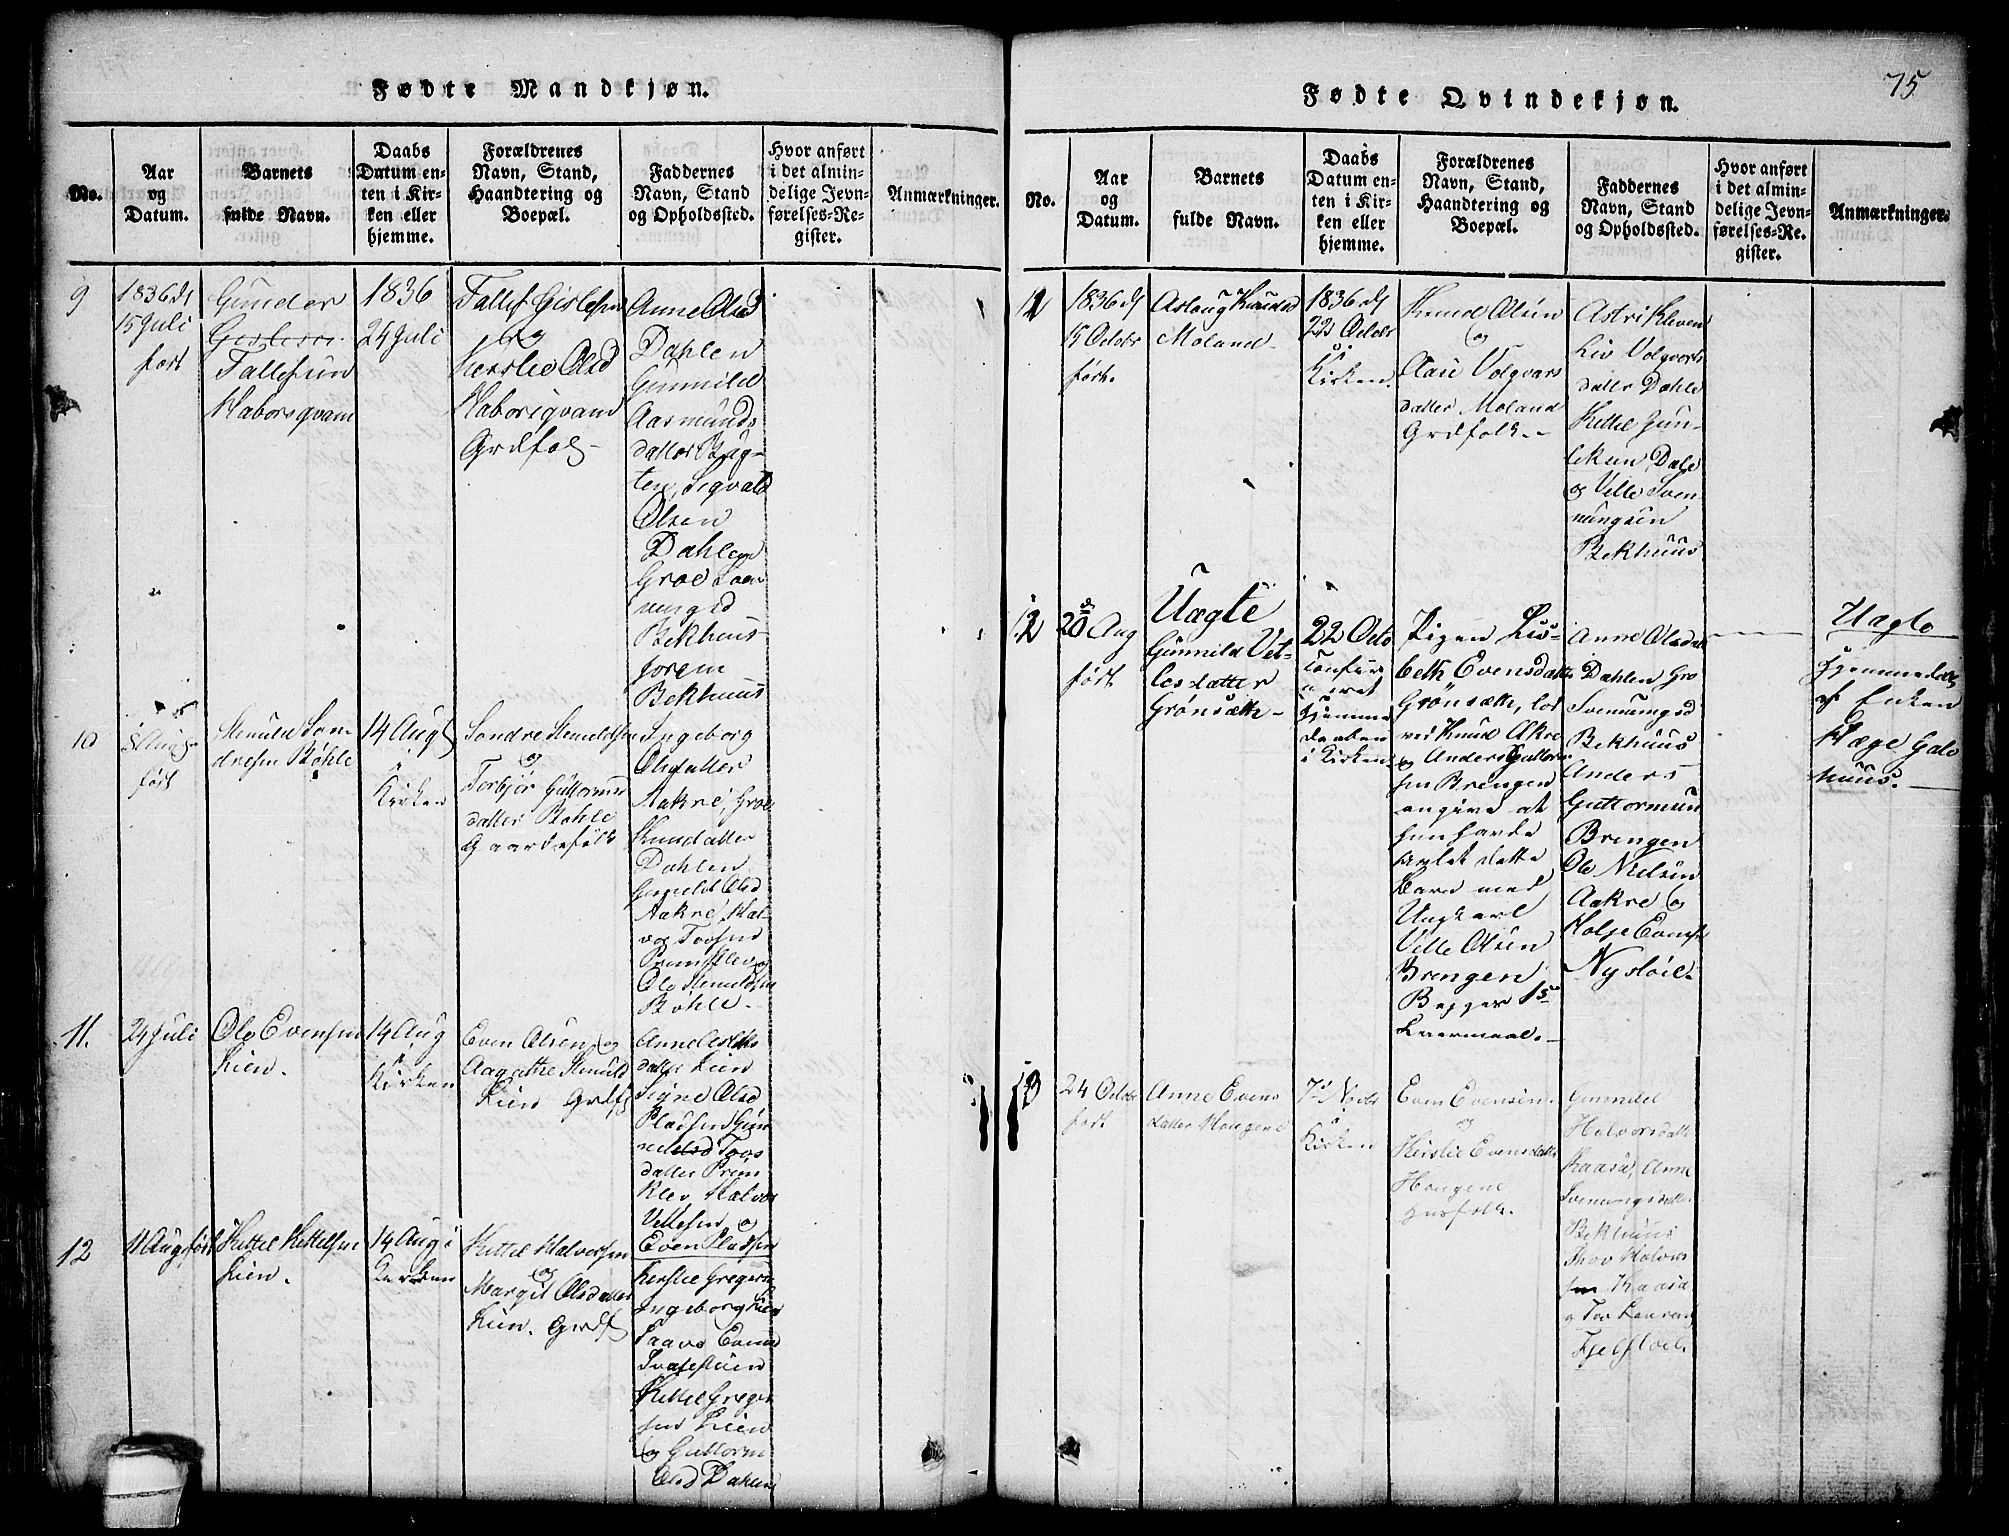 75
Fødte Mandkjøn.
No.
Aar
og
Datum.
Barnets
fulde Navn.
Daabs
Datum en-
ten i Kir-
ken eller
hjemme.
Forældrenes
Navn, Stand,
Haandtering og
Boepæl.
Faddernes
Navn, Stand
og Opholdssted.
Hvor anført
i det almin-
delige Jevn-
førelses-Re-
gister.
Anmærkninger.
9
1836 d
15 Juli
født
Gunder
Tallefsen
Haborsqvam
1836
24 Juli
Tallef Gislesen
og
Kerstie Olsd
Haborsqvam
Grdfolk
Anne Olsd
Dahlen
Gunnild
Aasmunds
datter Byg-
ten, Sigvald
Olsen
Dahlen
Groe Sven
nungsd
Bekhuus
Bekhuus
10
5 Aug
født
Nerüld Son-
dresen Bøhle
14 Aug
i
Kirken
Sondre
og
Torbjør Guttorms
datter Bøhle
Gaardefolk
Ingeborg
Olsdatter
Aakre, Groe
Knudatter
Dahlen
Gunild Olsd
Aakre, Hal-
vor Tovsen
Premklev og
Ole
Bøhle
11.
24 Juli
Ole Evensen
Lien.
14 Aug
i
Kirken
Even Olsen og
Aagathe
Lien Grdf
Anne
datter Lien
Signe Olsd
Pladsen Gun
Tovs
datter Prem
klev, Halvor
Vettesen og
Even Pladsen
12
11 Aug født
Kettel Kettelsen
Lien.
14 Aug i
Kirken
Kettel Halvorsen
og
Margit Olsdatter
Lien. Grdf
Kerstie Gregers
Ingeborg Lien
Taavo Evens
Kettel Greger
sen Lien
og Guttorm
Olsd Dahlen
Fødte Qvindekjøn.
No.
Aar
og
Datum.
Barnets
fulde Navn.
Daabs
Datum en-
ten i Kir-
ken eller
hjemme.
Forældrenes
Navn, Stand,
Haandtering og
Boepæl.
Faddernes
Navn, Stand
og Opholdssted.
Hvor anført
i det almin-
delige Jevn-
førelses-Re-
gister.
Anmærkninger.
11
1836 d
15 Octobr
født.
Aslaug Knudsd
Moland
1836 d
22 Octobr
i
Kirken.
Knud Olsen
og
Aase Volgvars
datter Moland
Grdfolk
Astri Kleven
Liv Volgvars
datter Dahle
Kettel Gun-
leksen Dale
og Vetle Sven
nungsen
Bekhuus
12
20 Aug
født
Uægte
Gunnild Vet-
lesdatter
Grønsæth
22 Octo
i Kirken
Pigen Lis-
beth Evensdatter
Grønsæth,
ved Knud Akre
og Anders Guttorm
sen Brengen
angive at
hun havde
avlet dette
Barn med
Ungkarl
Vetle Olsen
Brengen
Begges 1ste
Leiermaal.
Anne Olsdat
Dahlen Gro
Svennungsd
Bekhuus
Anders
Guttormsen
Brengen
Ole Nielsen
Aakre og
Holje Evens
Nystøil
Uægte
Hjemmedøbt
af Enken
Hæge Gale
huus.
13
24 Octobr
født
Anne Evens
datter Haugene
7d Novbr
i
Kirken
Even Evensen
og
Kirstie Evensdatter
Haugene
Husfolk.
Gunnild
Halvorsdatt
Kaasa, Anne
Svennungsdatt
Bekhuus
Thov Halvors
sen Kaasa
og Tov
Fjelstoel.